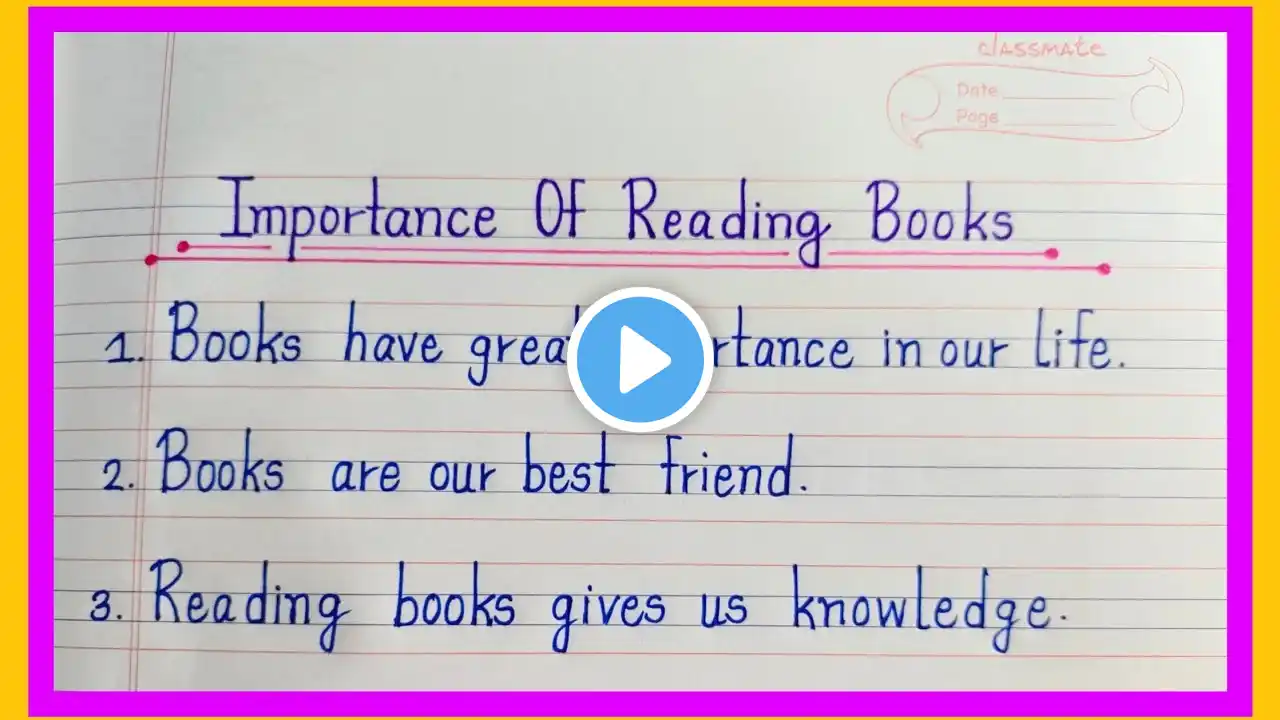 classmate
Date
Page
Importance Of Reading Books
1. Books have in our life.
2. Books are our best friend.
3. Reading books gives us knowledge.